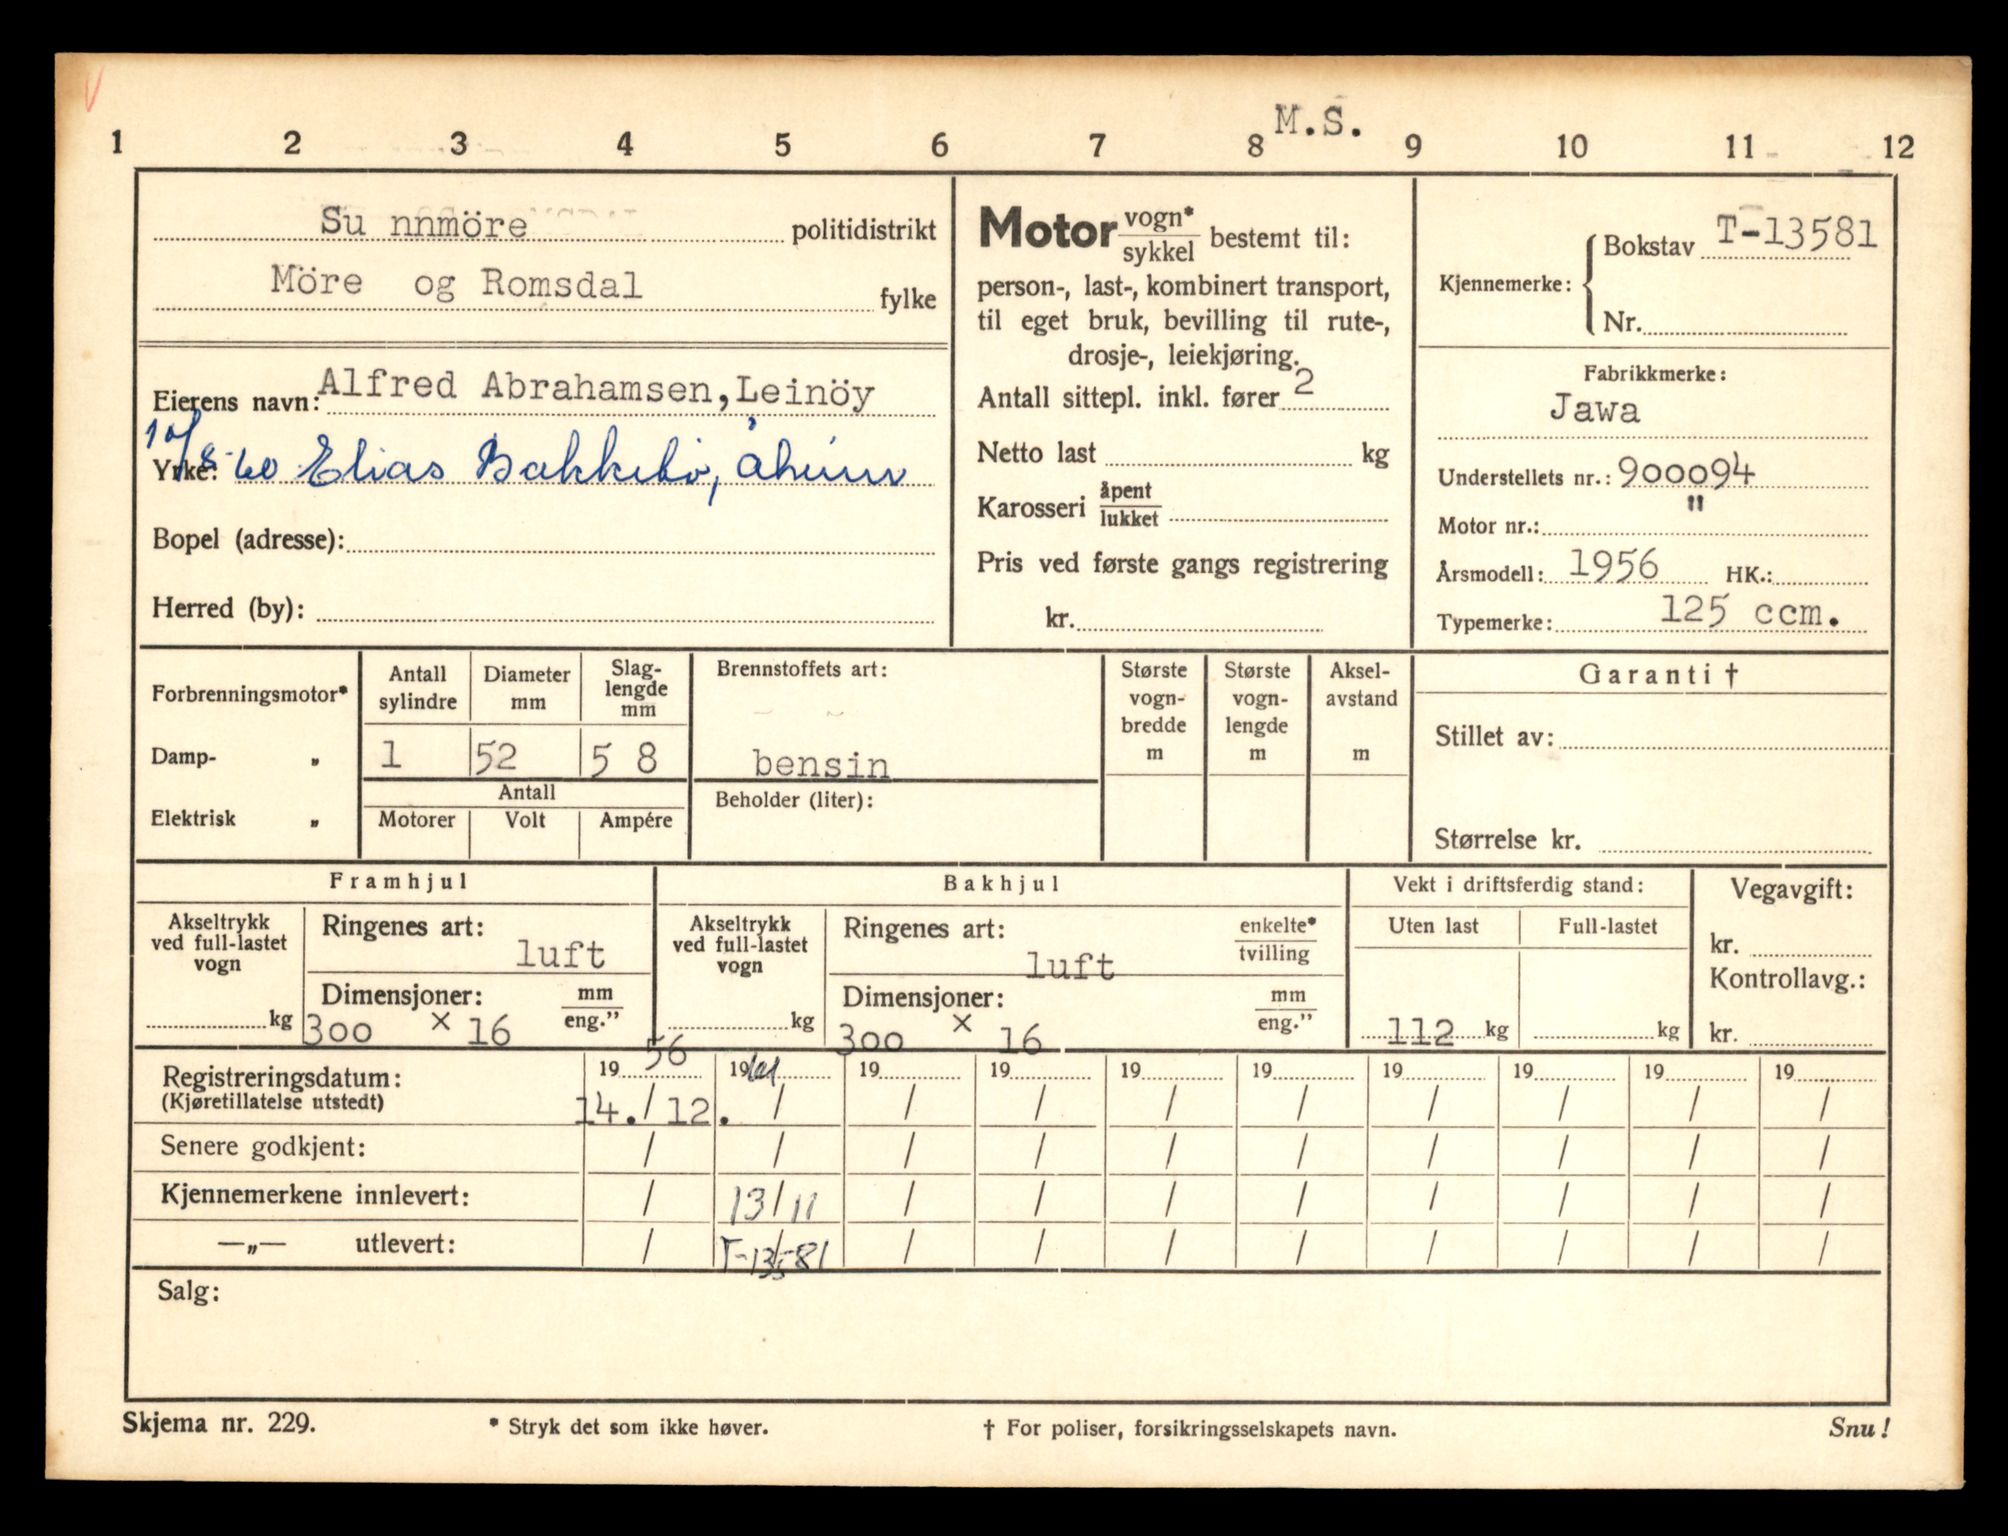 M.S.
1 2 3 4 5 6 7 8 9 10 11 12
Su nnmöre politidistrikt
Möre og Romsdal fylke
Eierens navn: Alfred Abrahamsen, Leinöy
10/8-60 Elias Bakkebö, Åheim
Yrke:
Bopel (adresse):
Herred (by):
Motor vogn*/sykkel bestemt til:
person-, last-, kombinert transport,
til eget bruk, bevilling til rute-,
drosje-, leiekjøring.
Antall sittepl. inkl. fører 2
Netto last kg
Karosseri åpent/lukket
Pris ved første gangs registrering
kr.
Kjennemerke: { Bokstav T-13581
Nr.
Fabrikkmerke:
Jawa
Understellets nr.: 900094
Motor nr.: "
Årsmodell: 1956 HK.:
Typemerke: 125 ccm.
Forbrenningsmotor*
Damp- „
Elektrisk „
Antall sylindre Diameter mm Slag-lengde mm
1 52 5 8
Antall
Motorer Volt Ampére
Brennstoffets art:
bensin
Beholder (liter):
Største vogn-bredde m
Største vogn-lengde m
Aksel-avstand m
Garanti †
Stillet av:
Størrelse kr.
Framhjul
Akseltrykk
ved full-lastet
vogn
kg
Ringenes art: luft
Dimensjoner: mm/eng."
300 × 16
Bakhjul
Akseltrykk
ved full-lastet
vogn
kg
Ringenes art: enkelte*/tvilling
luft
Dimensjoner: mm/eng."
300 × 16
Vekt i driftsferdig stand:
Uten last Full-lastet
112 kg kg
Vegavgift:
kr.
Kontrollavg.:
kr.
Registreringsdatum: 19 56 19 61 19 19 19 19 19 19 19 19
(Kjøretillatelse utstedt) 14. / 12. / / / / / / / / /
Senere godkjent: / / / / / / / / / /
Kjennemerkene innlevert: / 13/11 / / / / / / / /
—„— utlevert: / T-13581 / / / / / / / /
Salg:
Skjema nr. 229. * Stryk det som ikke høver. † For poliser, forsikringsselskapets navn. Snu!